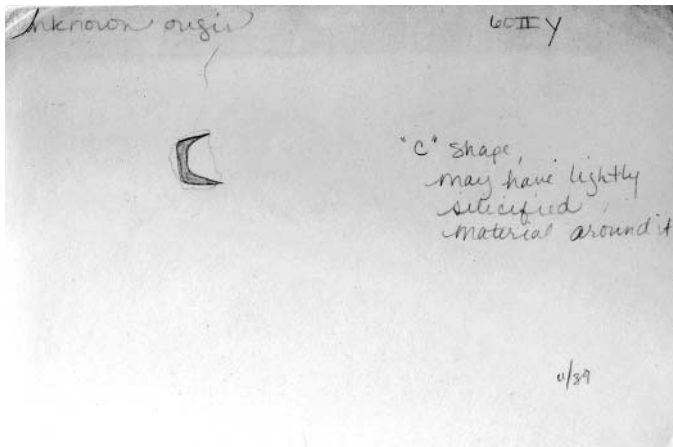 Unknown origin
60 II Y
"C" shape,
may have lightly
silicified
material around it
11/89